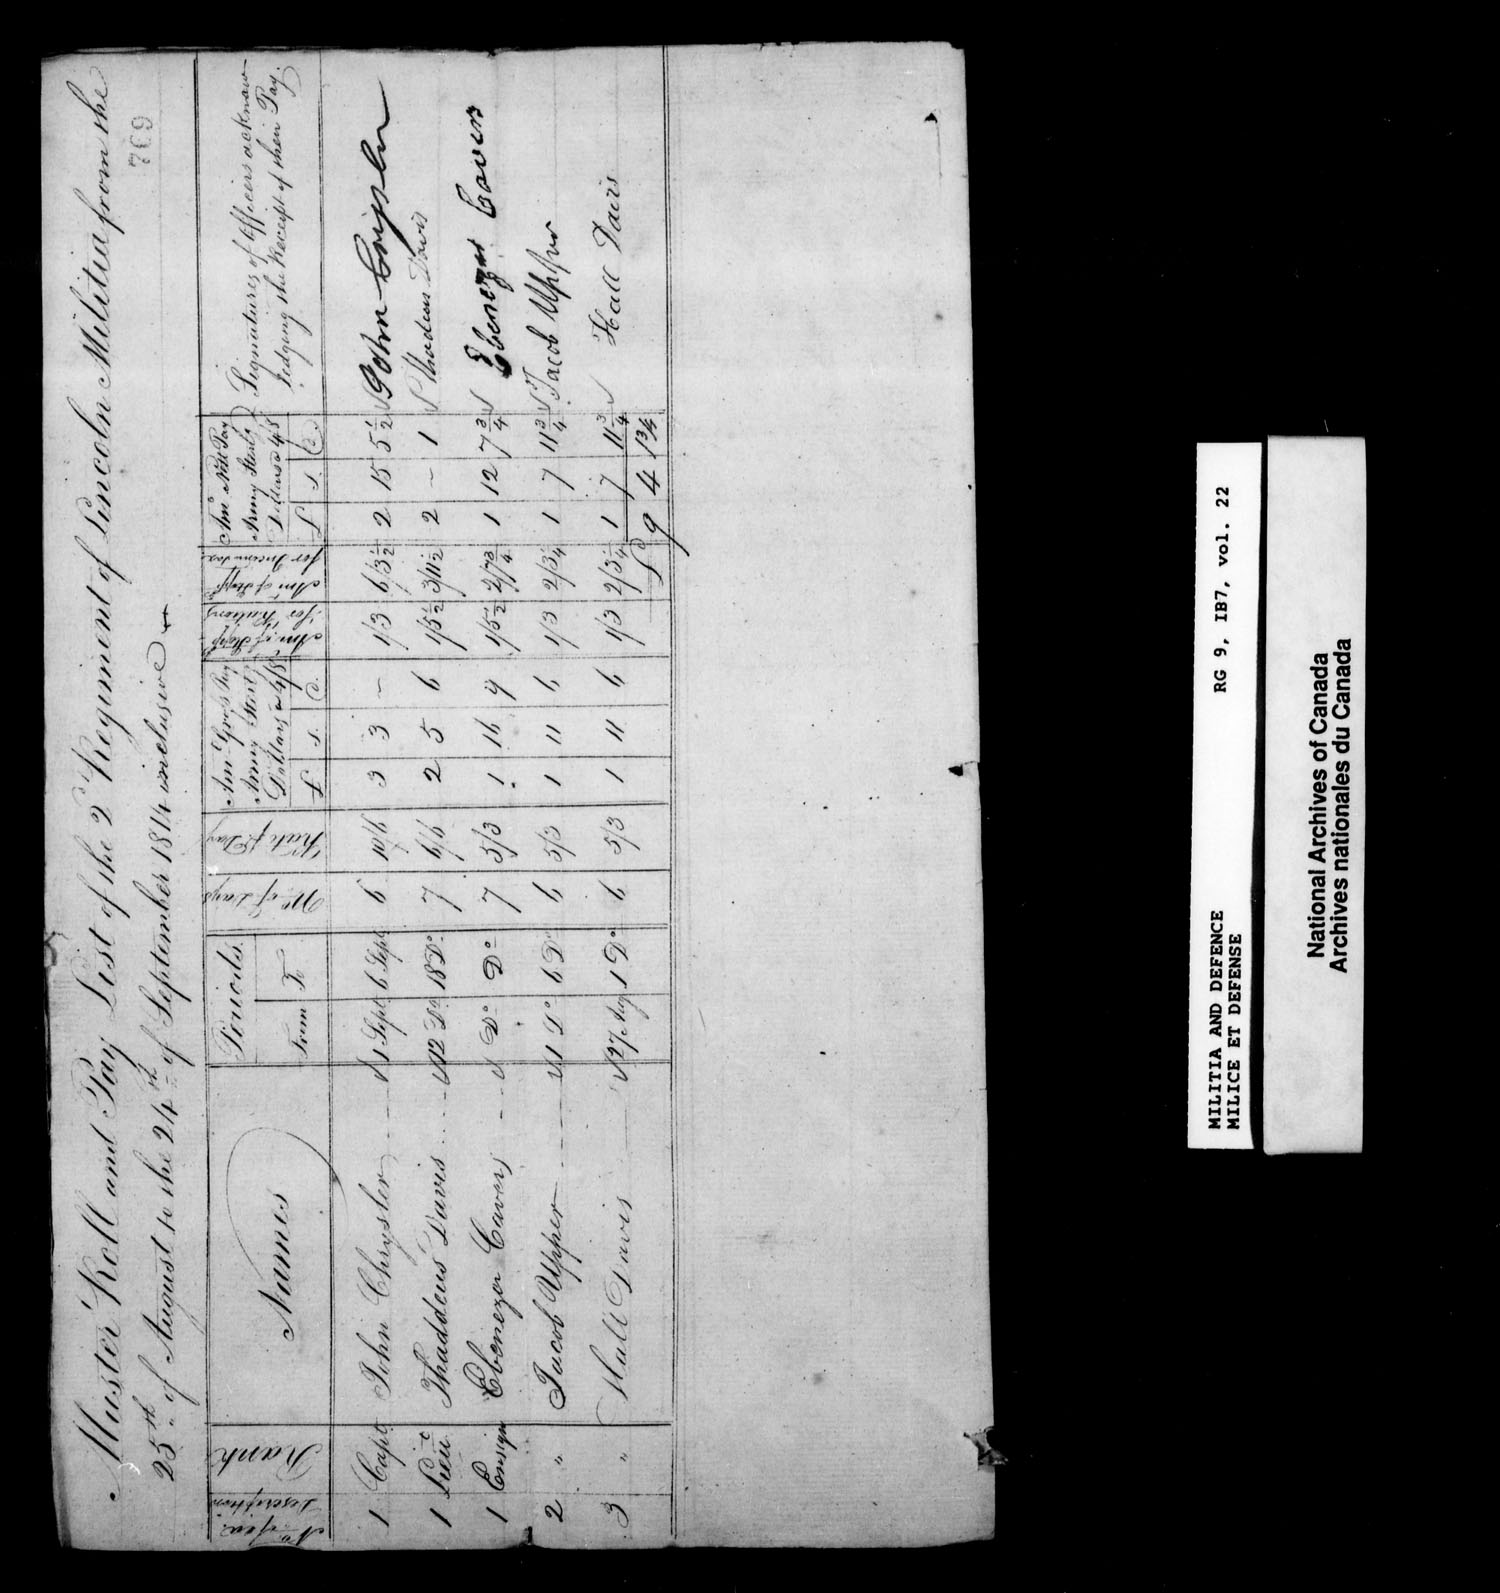 Muster Roll and Pay List of the 2d Regiment of Lincoln Militia from the
25th of August to the 24th of September 1814 inclusive
769
No of ea: Description | Rank | Names | Periods From | To | No of Days | Rate pr Day | Amt Gross Pay Army Sterlg Dollars a 4/8 £ | s. | d. | Amt of Stopp. for Rations | Amt of Stopp. for Income tax | Amt Nett Pay Army Sterlg Dollars a 4/8 £ | s. | d | Signatures of Officers acknowledging the Receipt of their Pay.
1 | Capt | John Chrysler | 1 Sept | 6 Sept | 6 | 10/6 | 3 | 3 | ~ | 1/3 | 6/3½ | 2 | 15 | 5½ | John Crysler
1 | Lieut | Thaddeus Davis | 12 Do | 18 Do | 7 | 6/6 | 2 | 5 | 6 | 1/5½ | 3/11½ | 2 | ~ | 1 | Thadeus Davis
1 | Ensign | Ebenezer Cavers | Do | Do | 7 | 5/3 | 1 | 16 | 9 | 1/5½ | 2/7¾ | 1 | 12 | 7¾ | Ebenezer Cavers
2 | " | Jacob Upper | 1 Do | 6 Do | 6 | 5/3 | 1 | 11 | 6 | 1/3 | 2/3¼ | 1 | 7 | 11¾ | Jacob Upper
3 | " | Hall Davis | 27 Aug | 1 Do | 6 | 5/3 | 1 | 11 | 6 | 1/3 | 2/3¼ | 1 | 7 | 11¾ | Hall Davis
£ 9 4 1¾
MILITIA AND DEFENCE RG 9, IB7, vol. 22
MILICE ET DEFENSE
National Archives of Canada
Archives nationales du Canada